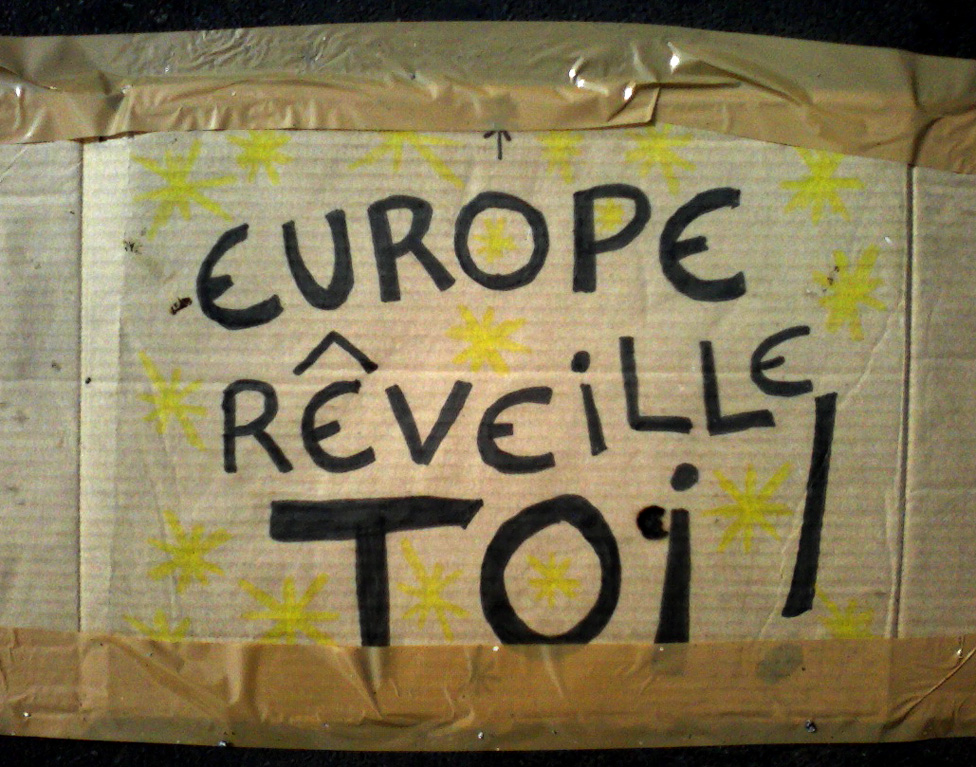 EUROPE
RÊVEiLLE
TOi!